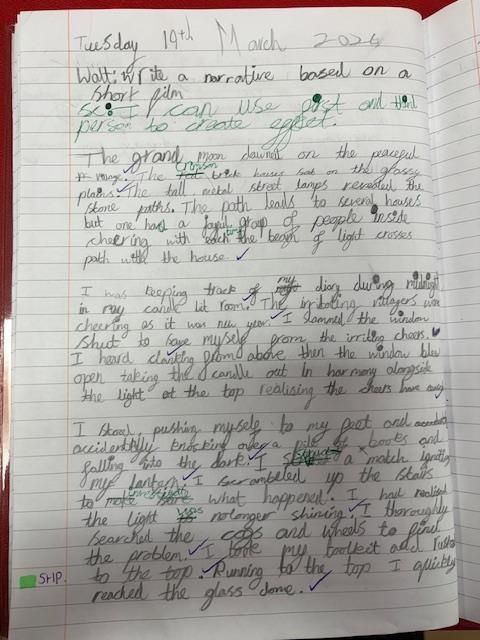 Tuesday 19th March 2024
Walt: write a narrative based on a
short film
SC: I can use past and third
person to create effect.
The grand moon dawned on the peaceful
village. The crimson brick houses sat on the grassy
plains. The tall metal street lamps revealed the
stone paths. The path leads to several houses
but one had a joyful group of people inside
cheering with each time the beam of light crosses
path with the house.
I was keeping track of my diary during midnight
in my candle lit room. The irritating villagers were
cheering as it was new year. I slammed the window
shut to save myself from the irriting cheers.
I heard clanking from above then the window blew
open taking the candle out in harmony alongside
the light at the top realising the cheers have
I stood, pushing myself to my feet and
accidentally knocking over a pile of books and
falling into the dark. I struck a match igniting
my lantern. I scrambled up the stairs
to investigate what happened. I had realised
the light was nolonger shining. I thoroughly
searched the cogs and wheels to find
the problem. I took my toolkit and
to the top. Running to the top I quickly
reached the glass dome.